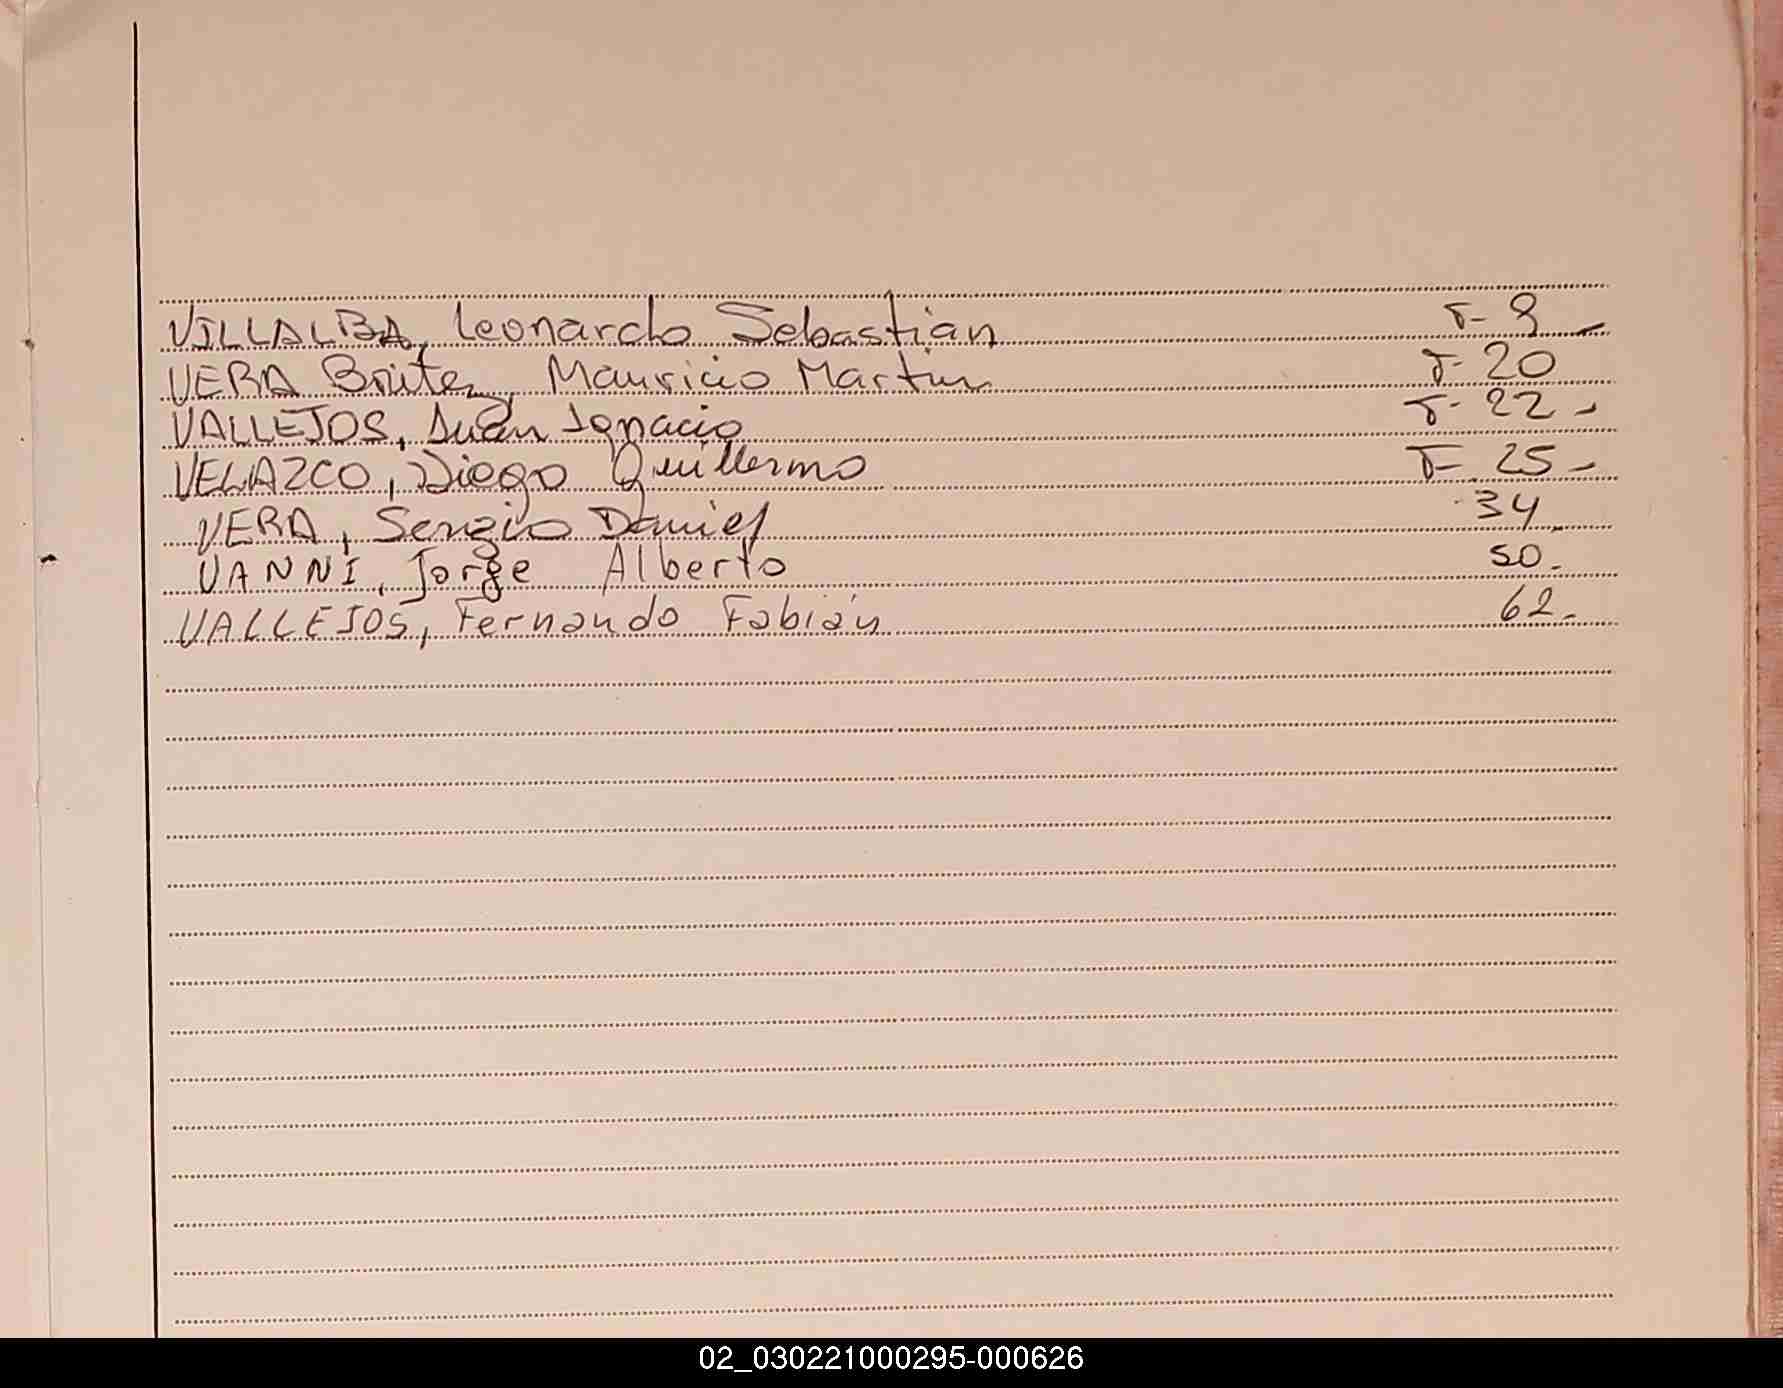 VILLALBA, Leonardo Sebastian F- 9 -
VERA Britez, Mauricio Martin F- 20
VALLEJOS, Juan Ignacio F- 22 -
VELAZCO, Diego Guillermo F- 25 -
VERA, Sergio Daniel 34.
VANNI, Jorge Alberto 50.
VALLEJOS, Fernando Fabián 62.
02_030221000295-000626